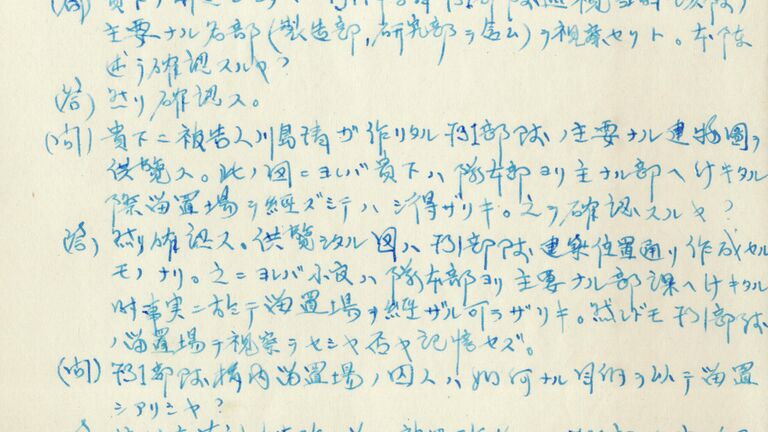 主要ナル各部(製造部,研究部ヲ含ム)ヲ視察セリト。本陳
述ヲ確認スルヤ?
(答) 然リ確認ス。
(問) 貴下ニ被告人川島清ガ作リタル731部隊ノ主要ナル建物図ヲ
供覧ス。此ノ図ニヨレバ貴下ハ隊本部ヨリ主ナル部ヘ行キタル
際留置場ヲ経ズシテハ行得ザリキ。之ヲ確認スルヤ?
(答) 然リ確認ス。供覧シタル図ハ731部隊建築位置通リ作成セル
モノナリ。之ニヨレバ小官ハ隊本部ヨリ主要ナル部課ヘ行キタル
時事実ニ於テ留置場ヲ経ザル可ラザリキ。然レドモ731部隊
ノ留置場ヲ視察ヲセシヤ否ヤ記憶セズ。
(問) 731部隊構内留置場ノ囚人ハ如何ナル目的ヲ以テ留置
シアリシヤ?